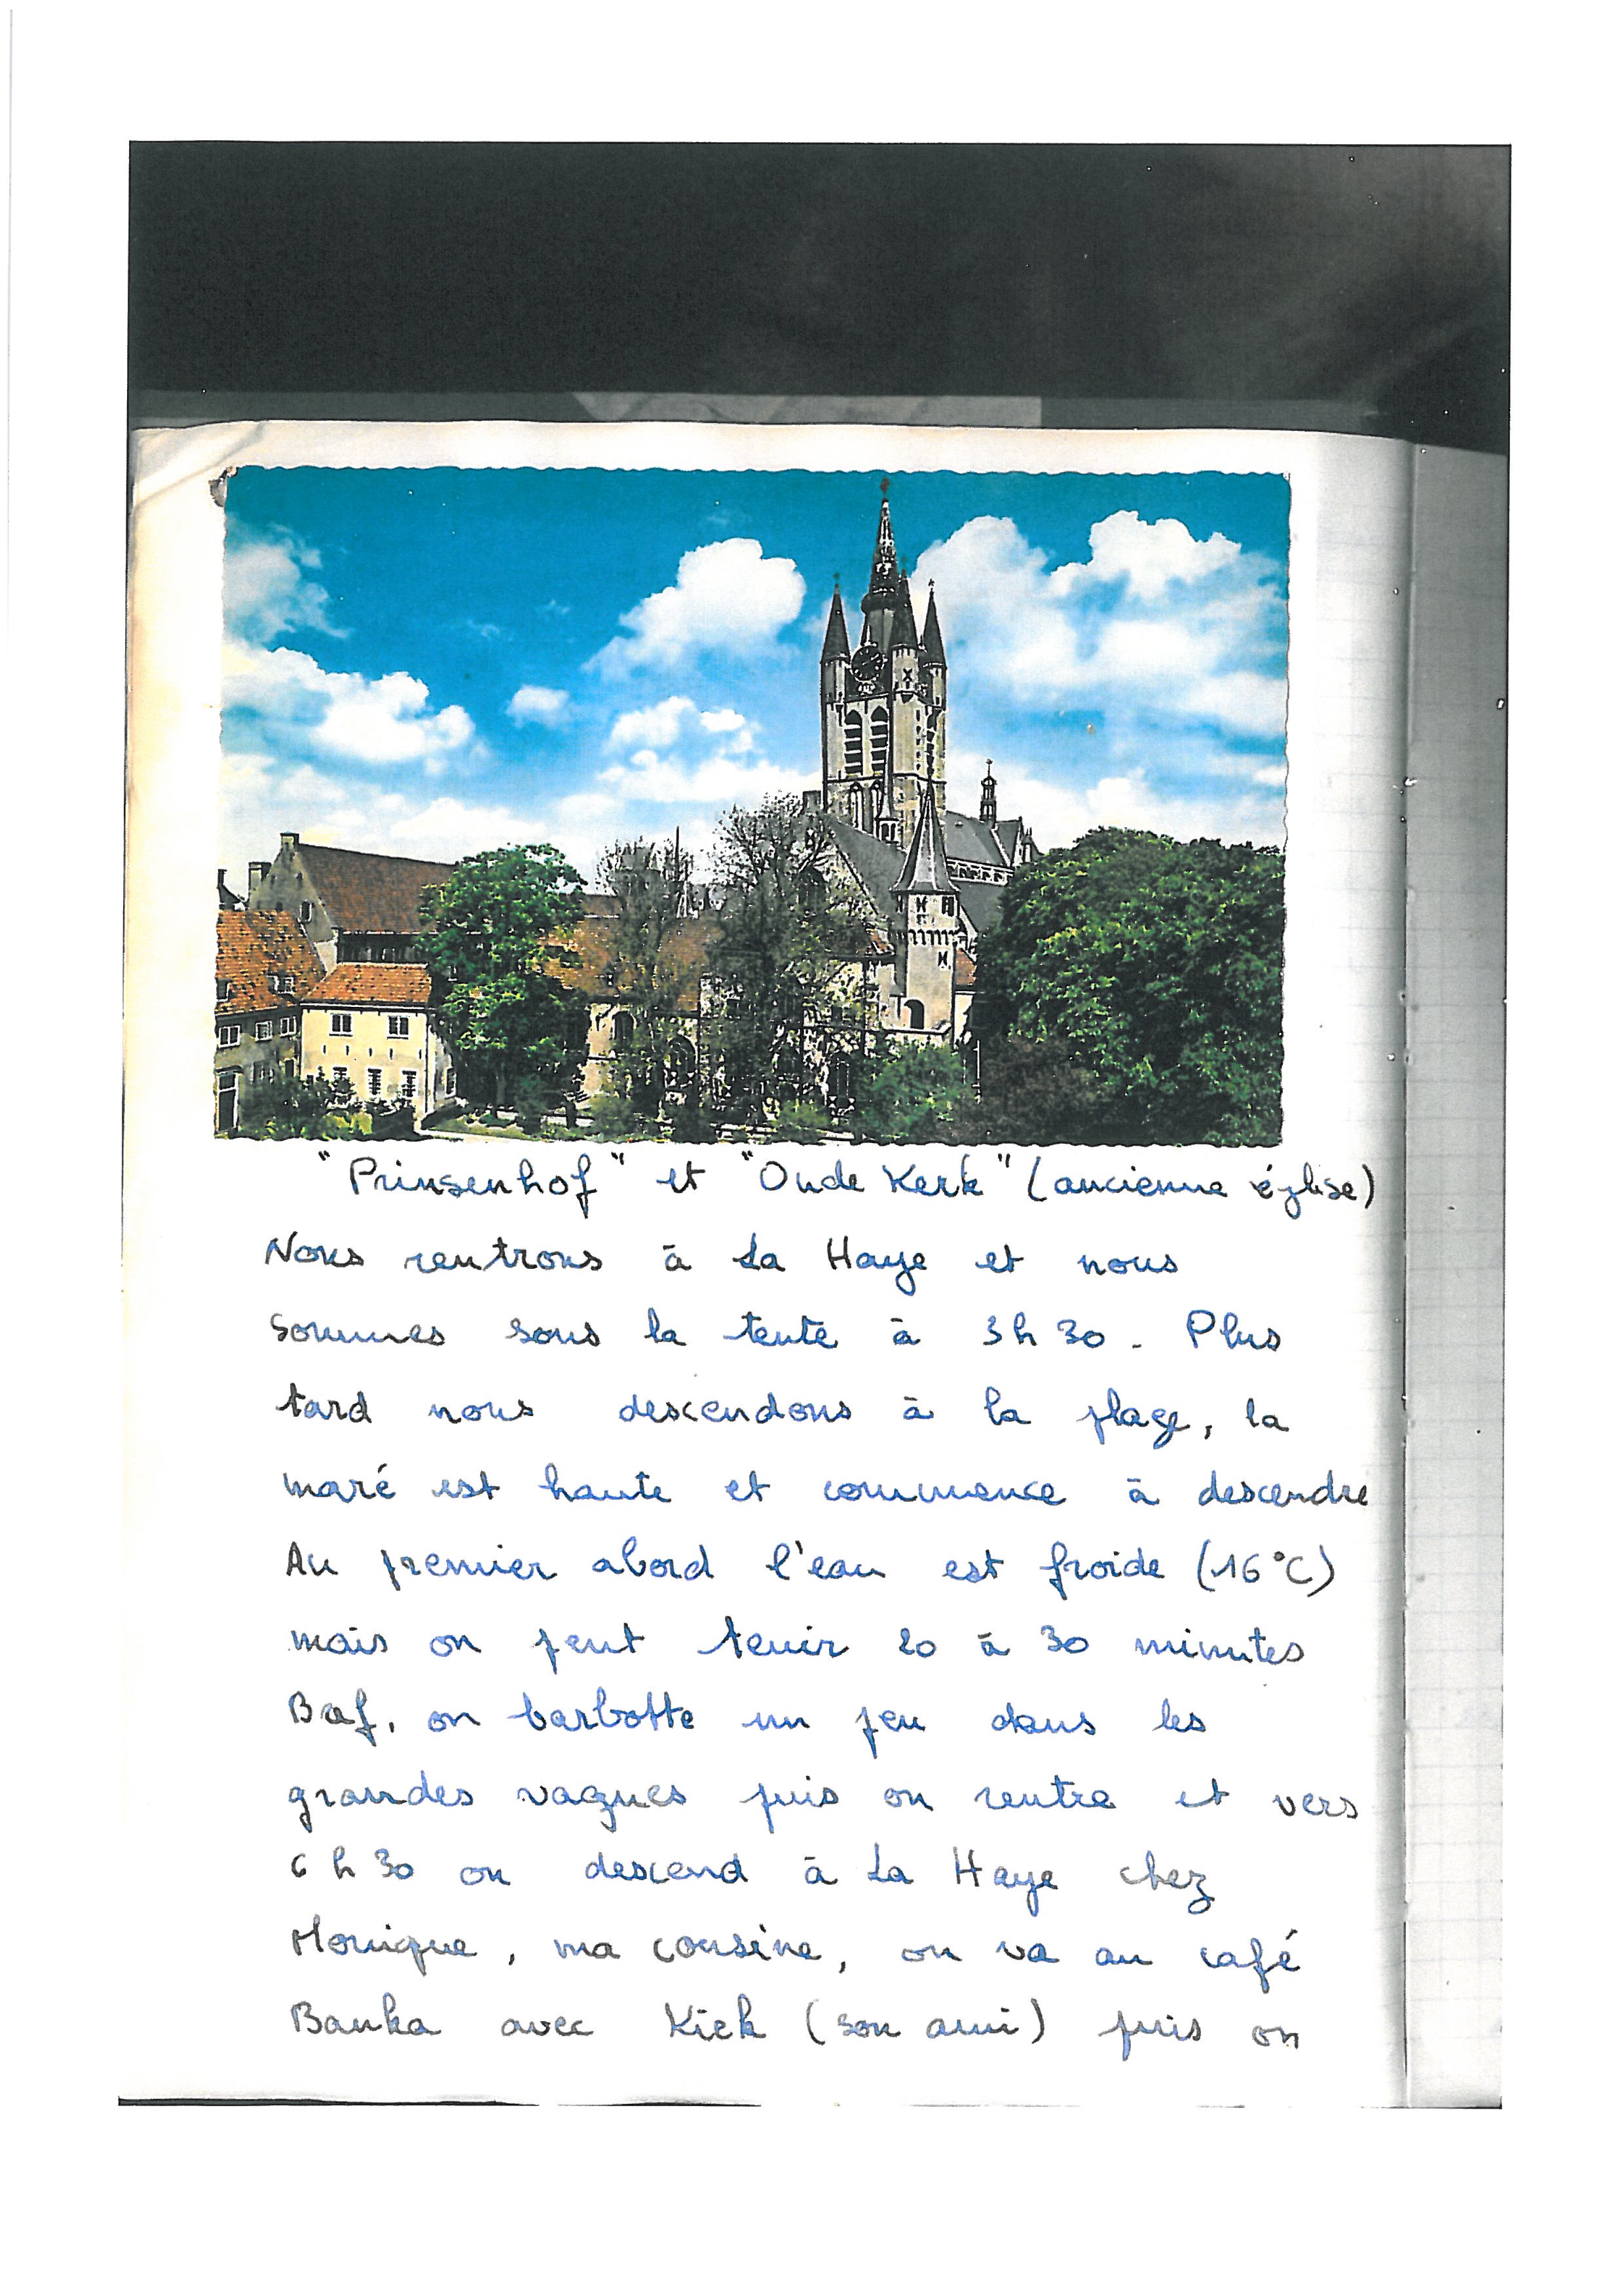 "Prinsenhof" et "Oude Kerk" (ancienne église)
Nous rentrons à La Haye et nous
sommes sous la tente à 3h30. Plus
tard nous descendons à la plage, la
maré est haute et commence à descendre
Au premier abord l'eau est froide (16°C)
mais on peut tenir 20 à 30 minutes
Baf, on barbotte un peu dans les
grandes vagues puis on rentre et vers
6h30 on descend à La Haye chez
Monique, ma cousine, on va au café
Banka avec Kick (son ami) puis on